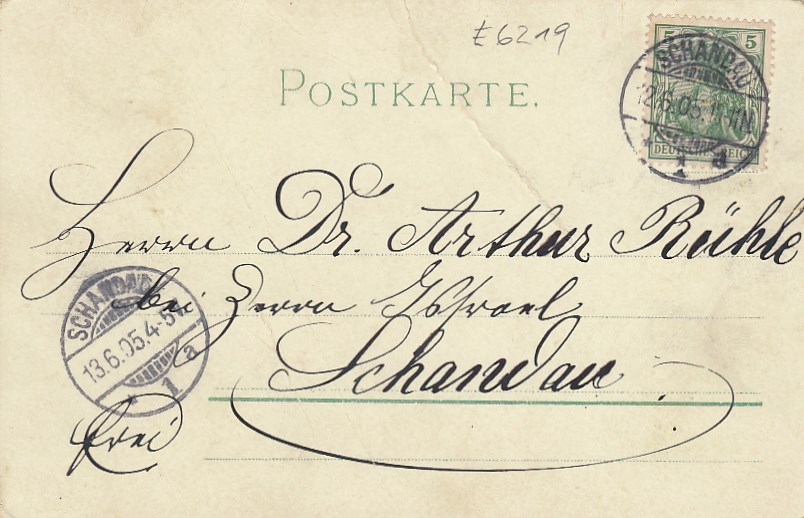 E6219
POSTKARTE.
5 5
DEUTSCHES REICH
SCHANDAU
12.6.05.11-12N
* 1 a
Herrn Dr. Arthur Rühle
bei Herrn Israel
Schandau
SCHANDAU
13.6.05.4-5
1 a
frei